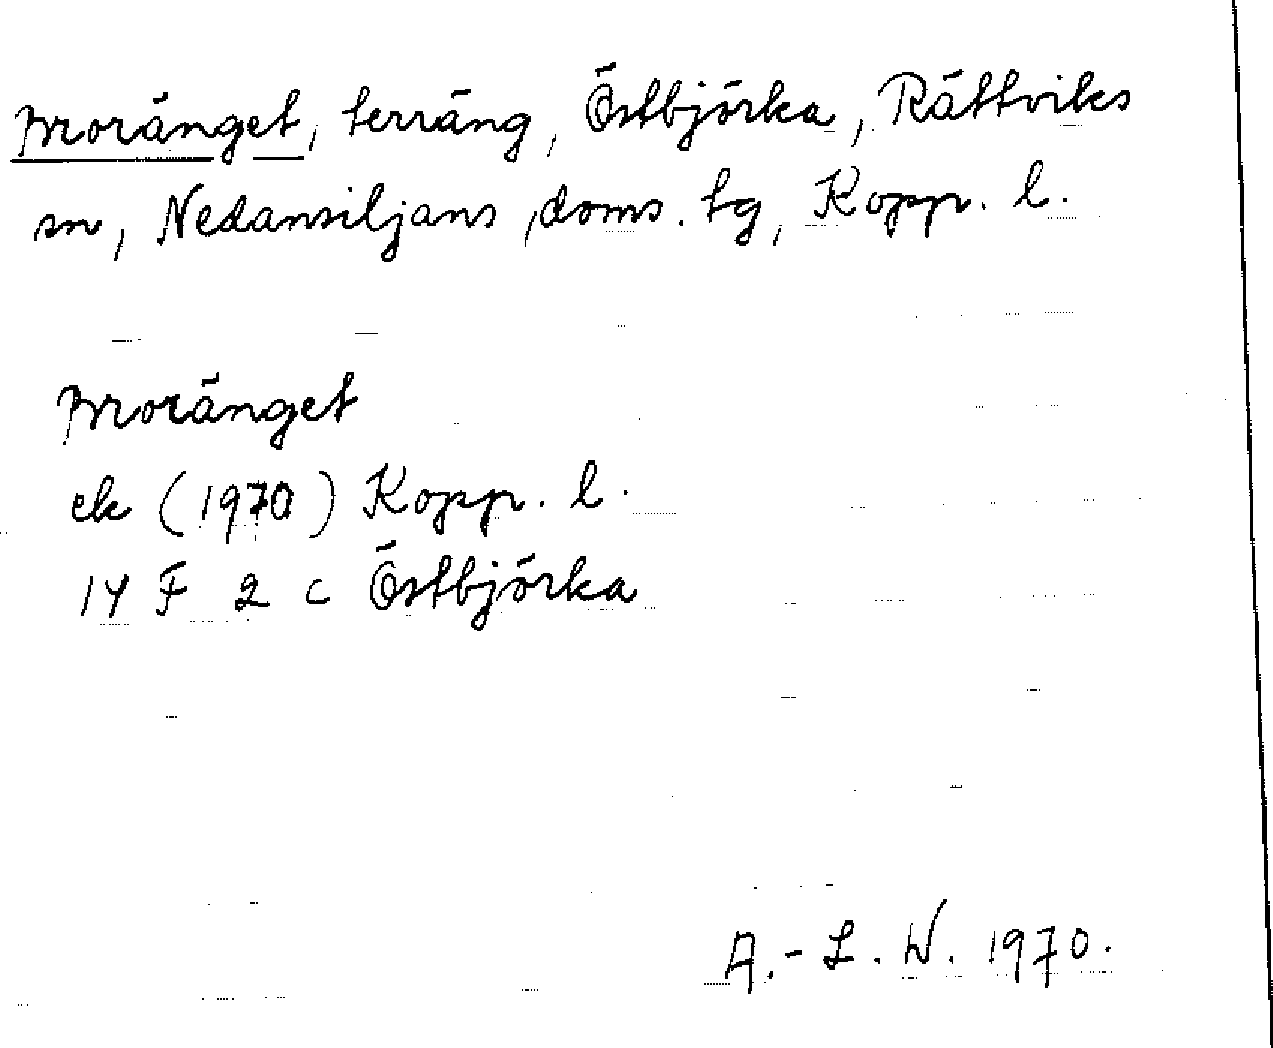 Moränget, terräng, Östbjörka, Rättviks
sn, Nedansiljans doms. tg, Kopp. l.
Moränget
ek (1970) Kopp. l.
14 F 2 c Östbjörka
A.-L. W. 1970.